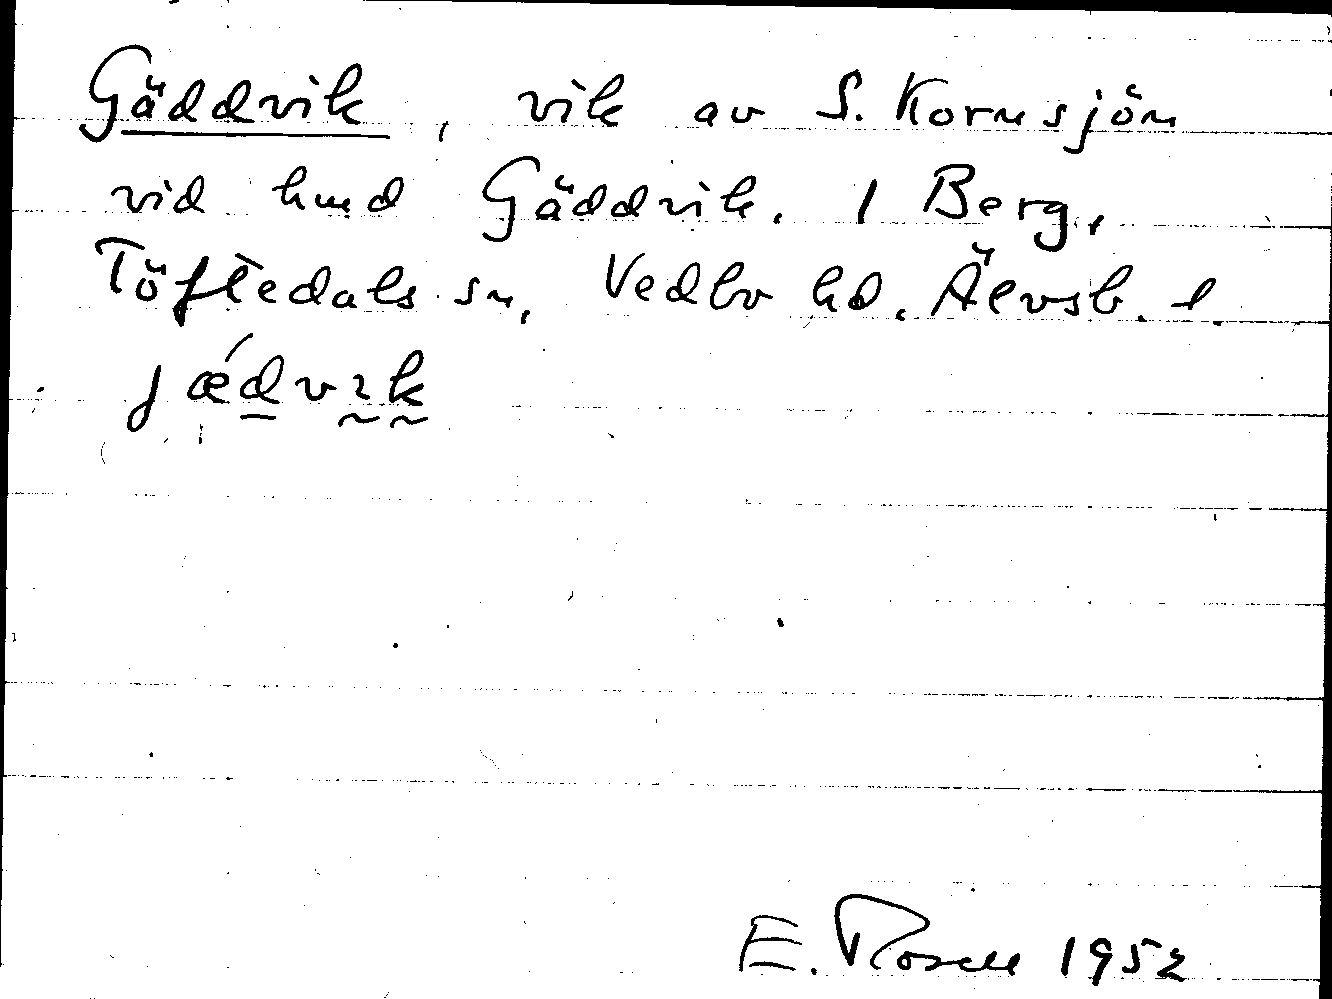 Gäddvik, vik av S. Kornsjön
vid hmd Gäddvik. 1 Berg,
Töftedals sn, Vedbo hd. Älvsb. l.
jǽdvık
E. Rosell 1952